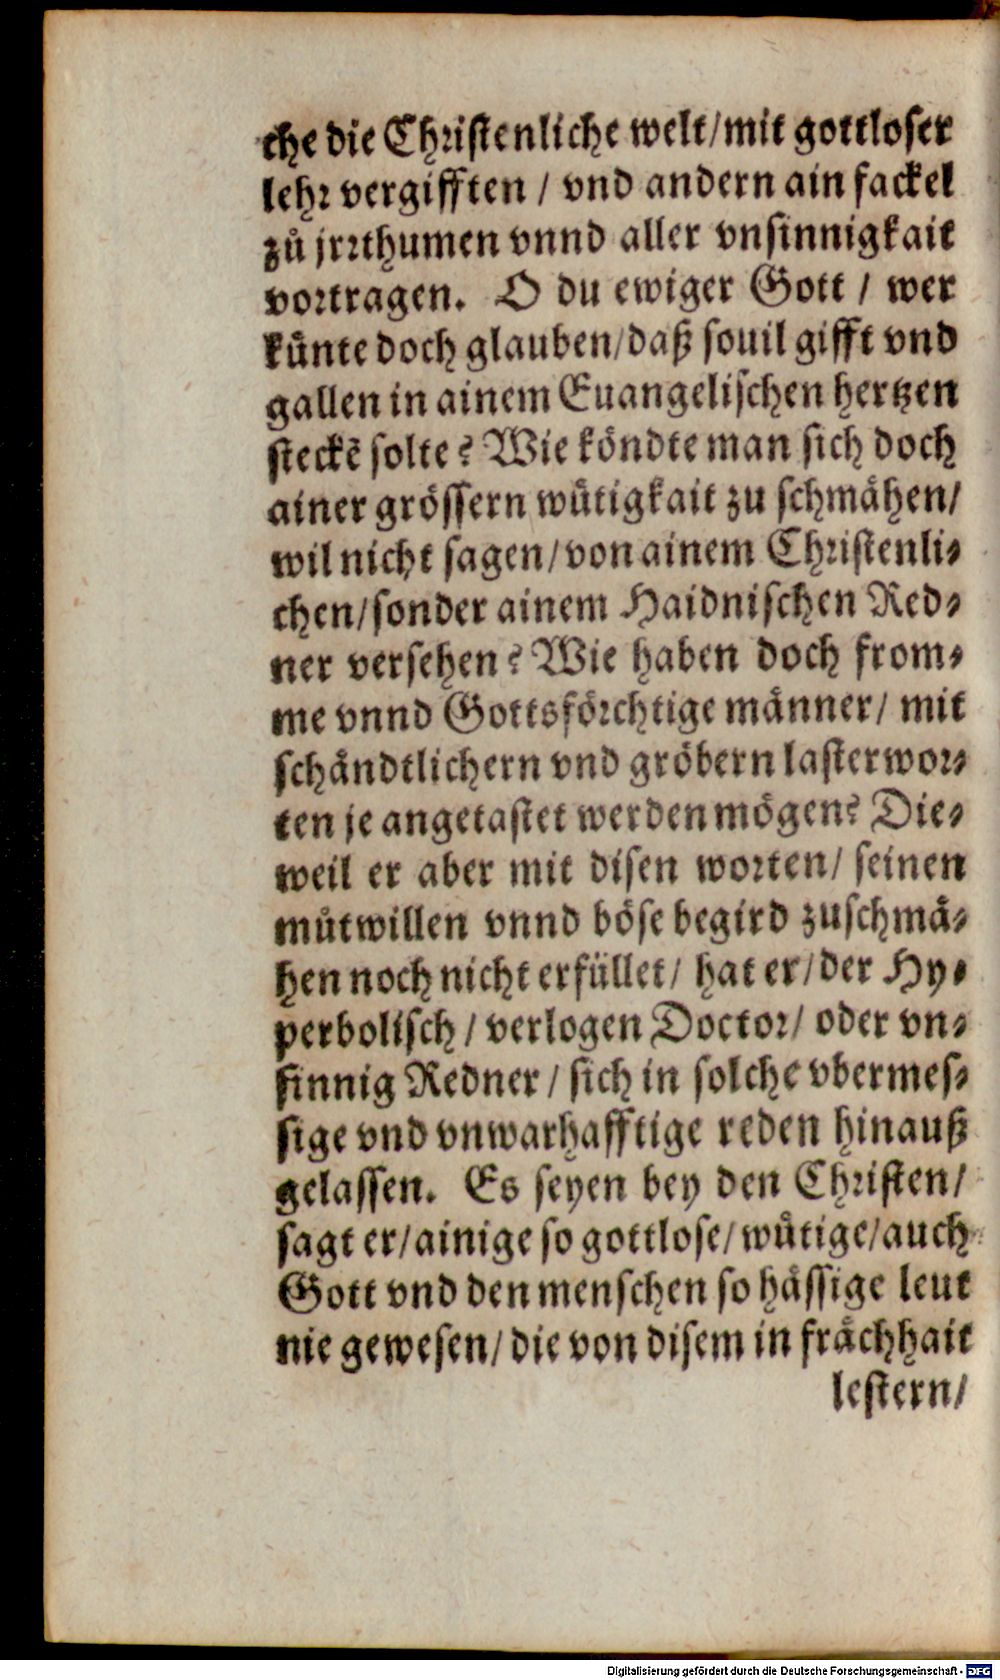 che die Christenliche welt/mit gottloser
lehr vergifften / vnd andern ain fackel
zů jrrthumen vnnd aller vnsinnigkait
vortragen. O du ewiger Gott / wer
künte doch glauben/daß souil gifft vnd
gallen in ainem Euangelischen hertzen
steckē solte? Wie köndte man sich doch
ainer grössern wütigkait zu schmähen/
wil nicht sagen/von ainem Christenli⸗
chen/sonder ainem Haidnischen Red⸗
ner versehen? Wie haben doch from⸗
me vnnd Gottsförchtige männer/ mit
schändtlichern vnd gröbern lasterwor⸗
ten je angetastet werden mögen? Die⸗
weil er aber mit disen worten/ seinen
můtwillen vnnd böse begird zuschmä⸗
hen noch nicht erfüllet/ hat er/der Hy⸗
perbolisch / verlogen Doctor/ oder vn⸗
sinnig Redner / sich in solche vbermes⸗
sige vnd vnwarhafftige reden hinauß
gelassen. Es seyen bey den Christen/
sagt er/ainige so gottlose/wütige/auch
Gott vnd den menschen so hässige leut
nie gewesen/die von disem in frächhait
lestern/
Digitalisierung gefördert durch die Deutsche Forschungsgemeinschaft - DFG